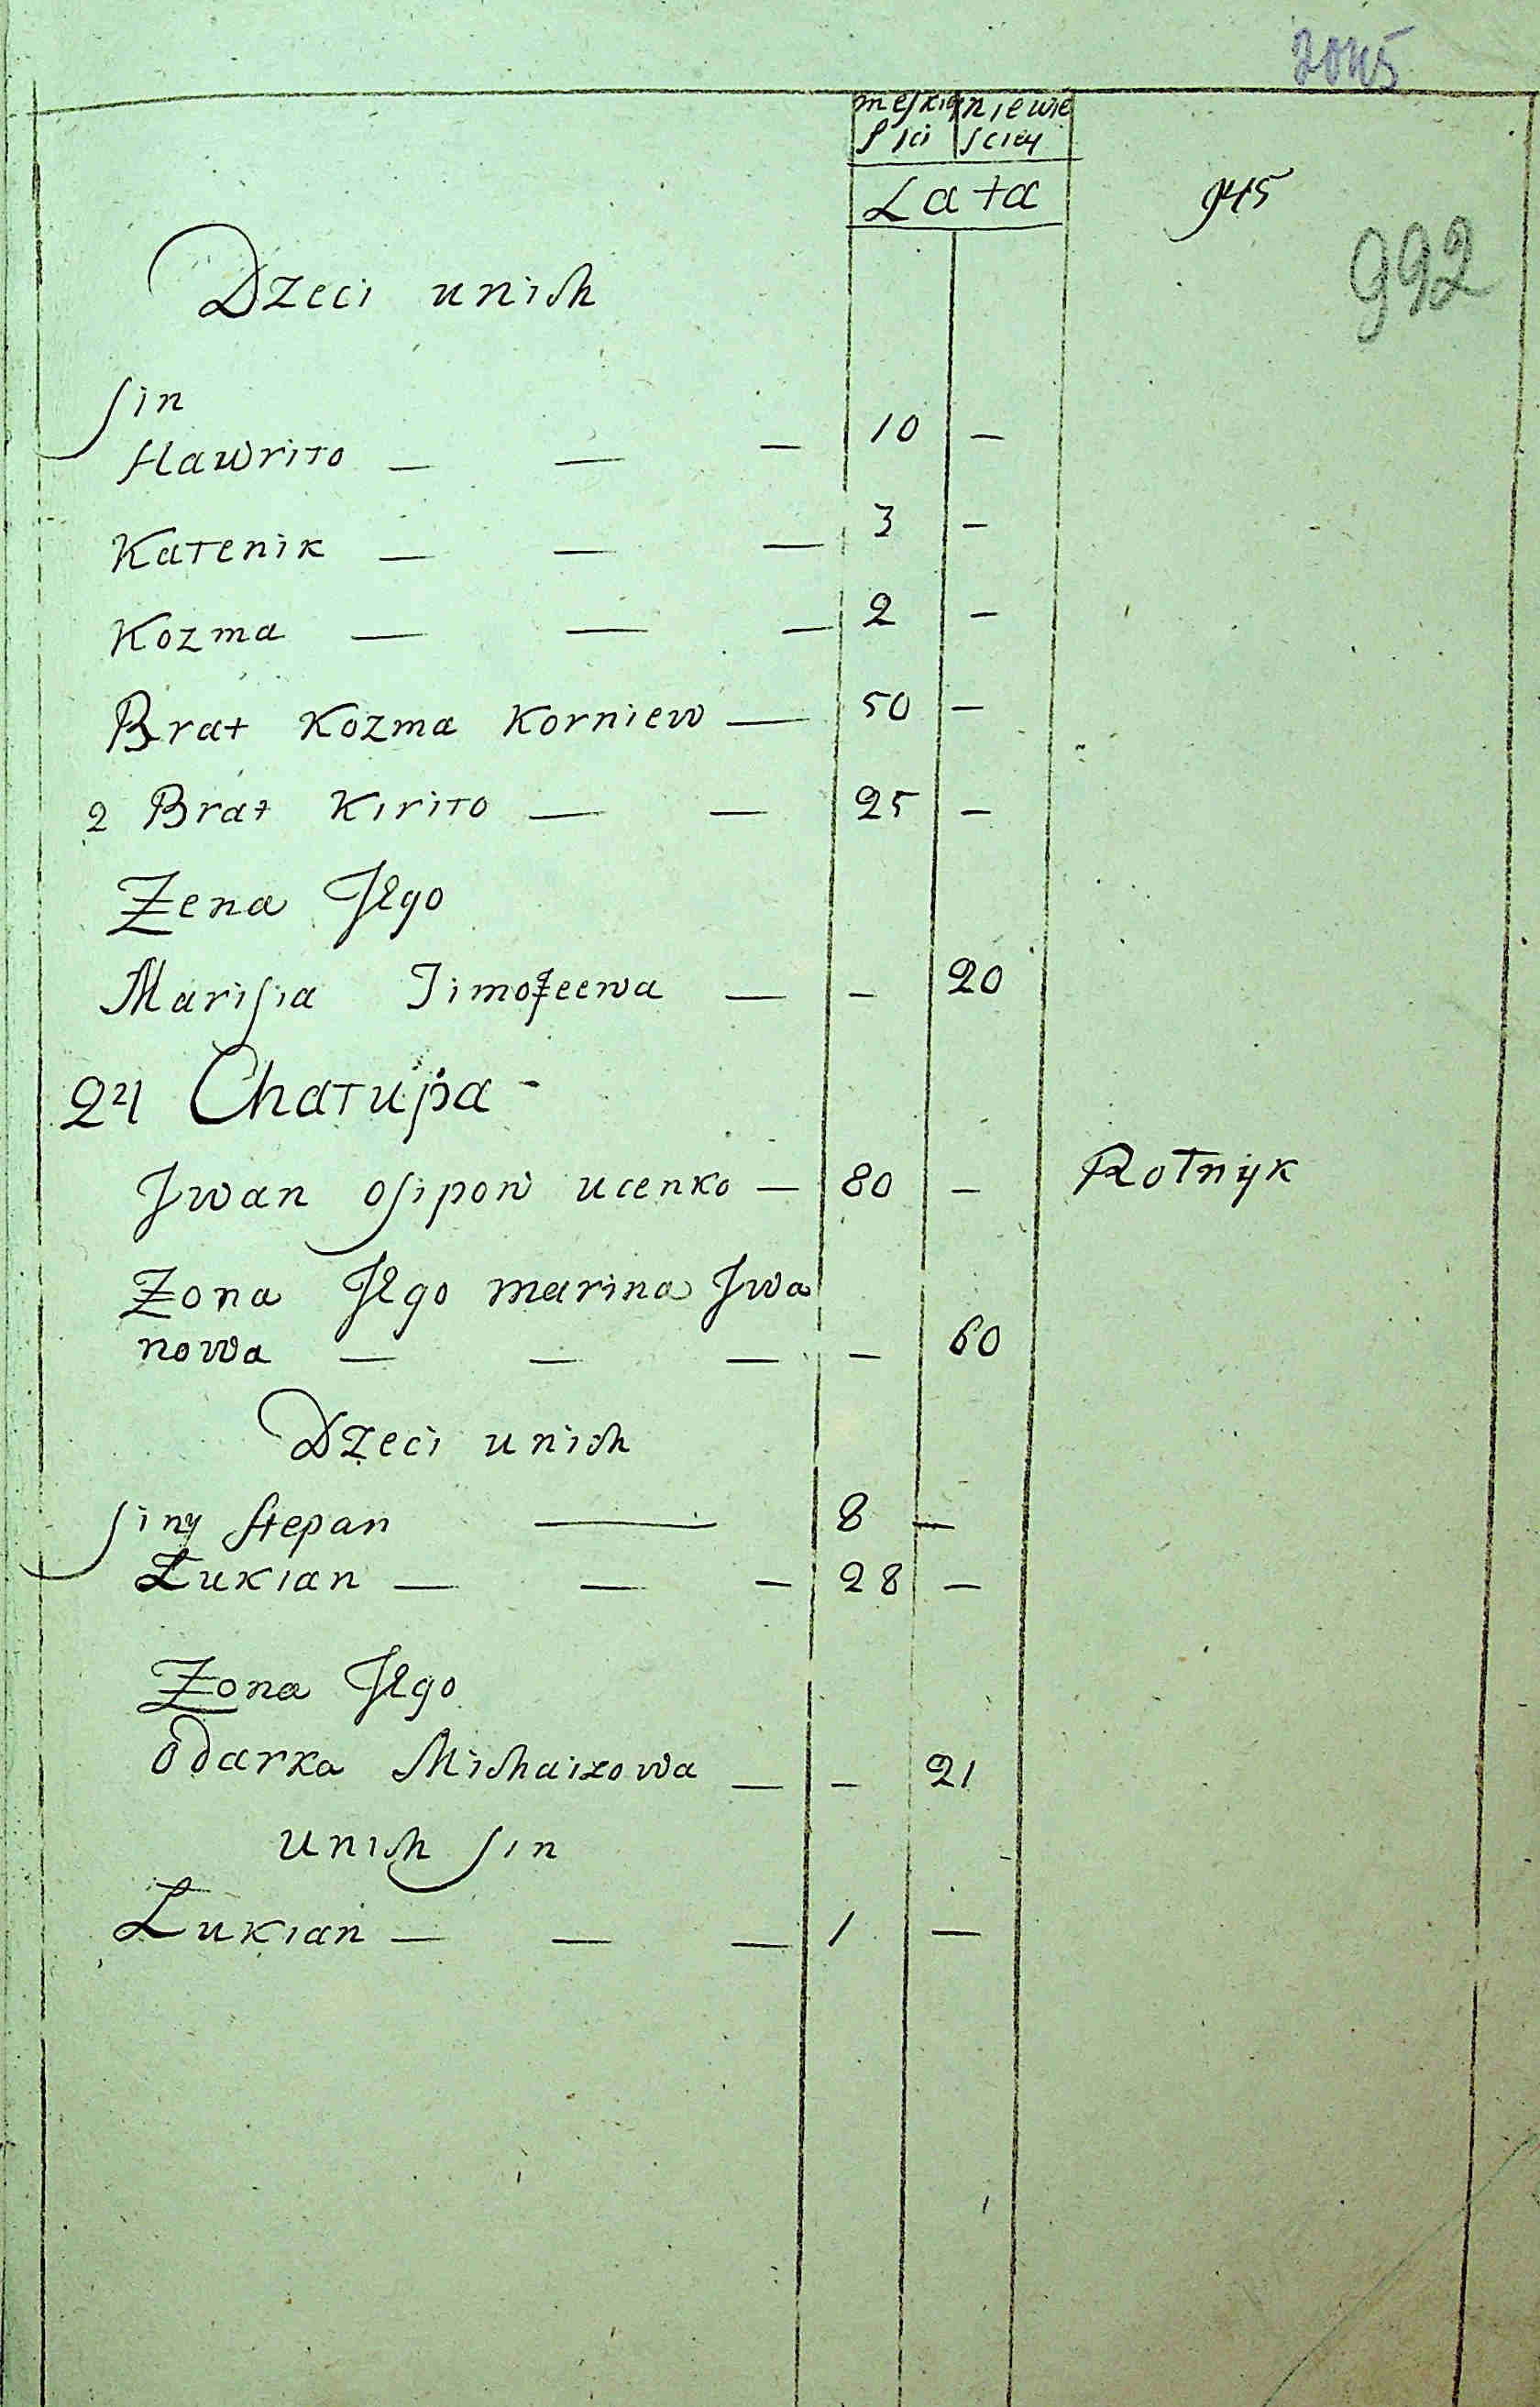 2045
męskiey niewie
płci sciey
Lata
945
992
Dzeci unich
sin
Hawriło — — — 10 —
Kałenik — — — 3 —
Kozma — — — 2 —
Brat Kozma Korniew — 50 —
2 Brat Kiriło — — 25 —
Żena Jego
Marisia Timofeewa — — 20
24 Chałupa -
Jwan osipow ucenko — 80 — Rolnyk
Żona Jego marina Jwa
nowa — — — — 60
Dzeci unich
siny stepan — 8 —
Łukian — — — 28 —
Żona Jego
Odarka Michaiłowa — — 21
unich sin
Łukian — — — 1 —